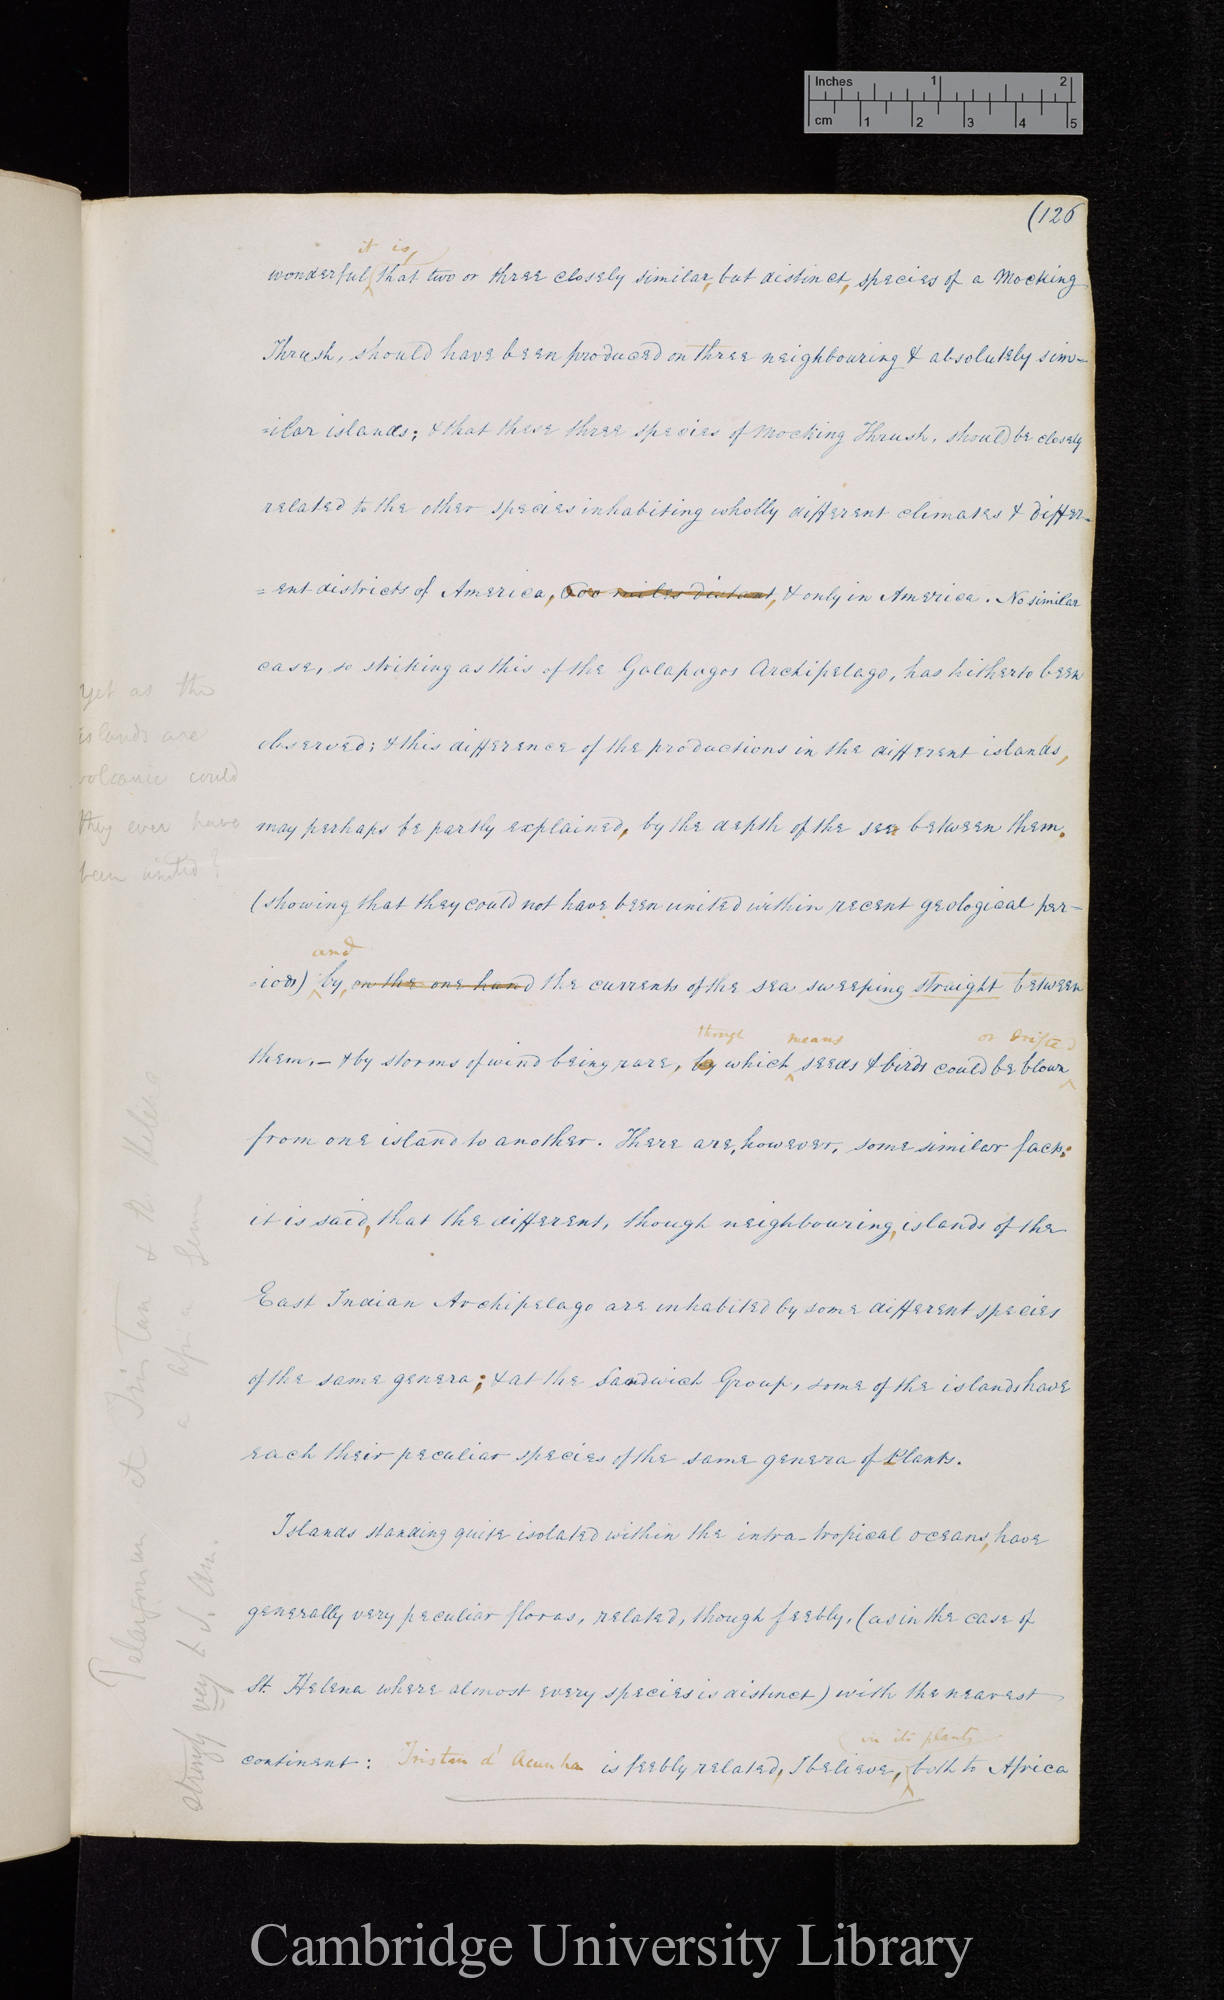 Inches 1 2
cm 1 2 3 4 5
(126
it is,
wonderful that two or three closely similar, but distinct, species of a Mocking
Thrush, should have been produced on three neighbouring & absolutely sim-
=ilar islands; & that these three species of Mocking Thrush, should be closely
related to the other species inhabiting wholly different climates & differ-
=ent districts of America, 600 miles distant, & only in America. No similar
case, so striking as this of the Galapagos Archipelago, has hitherto been
observed; & this difference of the productions in the different islands,
may perhaps be partly explained, by the depth of the sea between them.
(showing that they could not have been united within recent geological per-
and
-iods) by, on the one hand the currents of the sea sweeping straight between
though means or drifted
them,- & by storms of wind being rare, by which seeds & birds could be blown
from one island to another. There are, however, some similar facts:
it is said, that the different, though neighbouring, islands of the
East Indian Archipelago are inhabited by some different species
of the same genera; & at the Sandwich Group, some of the islands have
each their peculiar species of the same genera of Plants.
Islands standing quite isolated within the intra-tropical oceans, have
generally very peculiar floras, related, though feebly, (as in the case of
St. Helena where almost every species is distinct) with the nearest
(in its plants
continent: Tristan d' Acunha is feebly related, I believe, both to Africa
yet as the
islands are
volcanic could
they ever have
been united?
Pelargonium at Tristan & St Helena
a afri
strongly very to S. Am.
Cambridge University Library